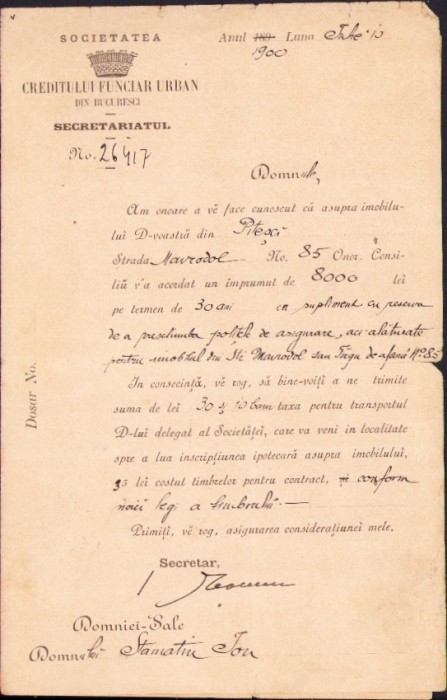 SOCIETATEA
CREDITULUI FUNCIAR URBAN
DIN BUCURESCI
SECRETARIATUL
No. 26417
Anul 189 Luna Iulie 10
1900
Domnule,
Am onoare a vĕ face cunoscut că asupra imobilu-
lui D-voastră din Piteșci
Strada Mavrodol No. 85 Onor. Consi-
liŭ v'a acordat un împrumut de 8000 lei
pe termen de 30 ani in supliment cu reserva
de a preschimba polițele de asigurare, aci alăturate
pentru imobilul din Str. Mavrodol sau Târgu de afară No 85
In consecință, vĕ rog, să bine-voiți a ne trimite
suma de lei 30 și 10 bani taxa pentru transportul
D-lui delegat al Societăței, care va veni in localitate
spre a lua inscripțiunea ipotecară asupra imobilului,
35 lei costul timbrelor pentru contract, și conform
noiei legi a timbrului.—
Primiți, vĕ rog, asigurarea considerațiunei mele.
Secretar,
Domniei-Sale
Domnului Stamatin Ion
Dosar No.